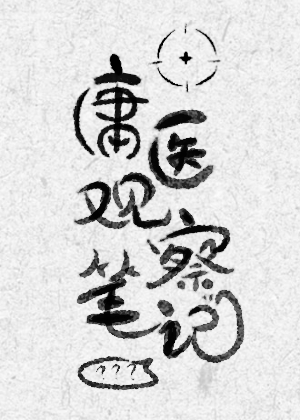 庸医
观察
笔记
???